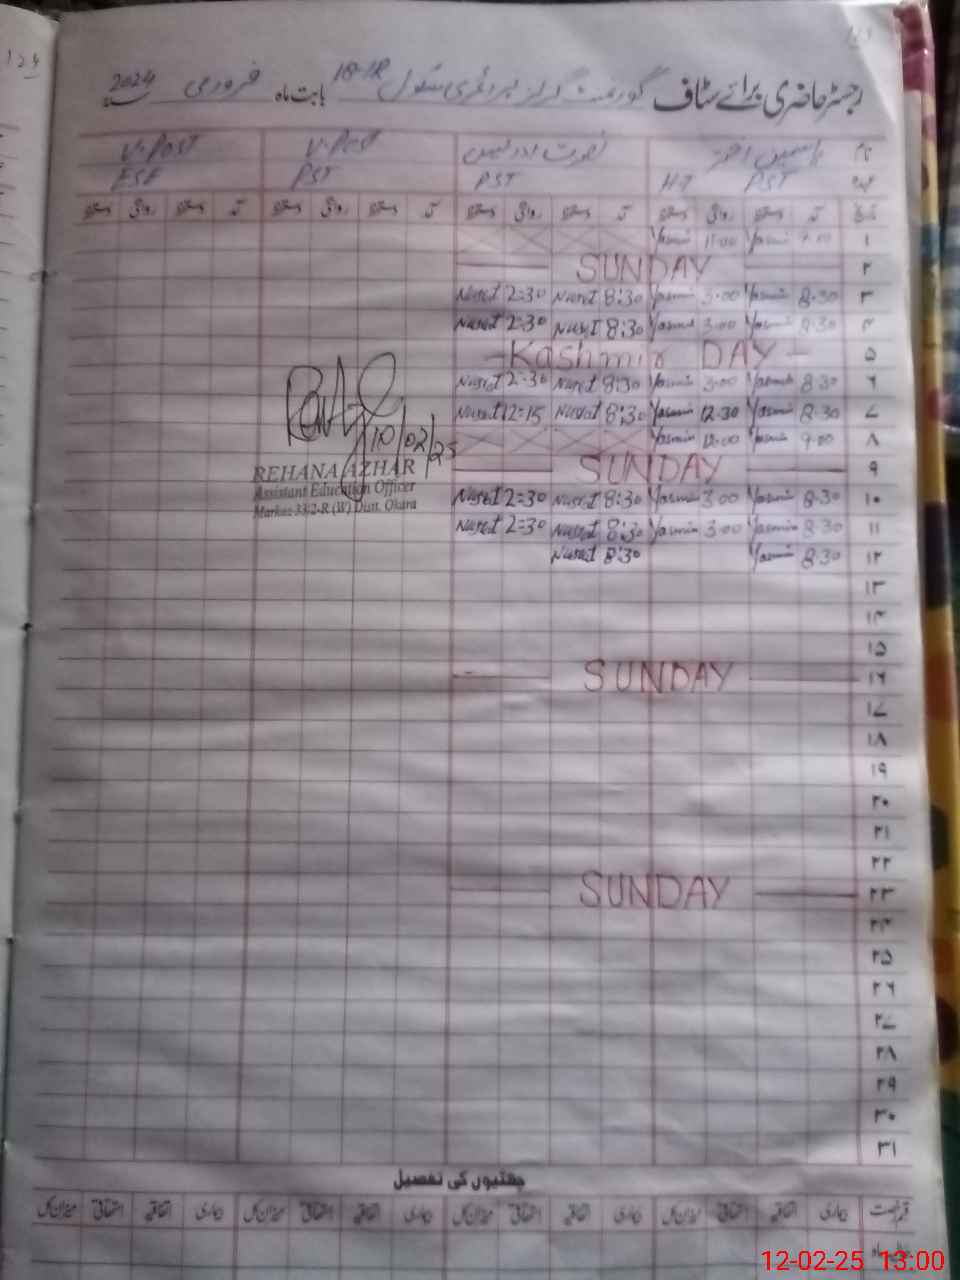 رجسٹر حاضری برائے سٹاف گورنمنٹ گرلز پرائمری سکول 18-1R بابت ماہ فروری سنہ 2024
نام یاسمین اختر نصرت ادریس V.Post V.Post
عہدہ PST HT PST PST ESE
تاریخ آمد دستخط روانگی دستخط آمد دستخط روانگی دستخط آمد دستخط روانگی دستخط آمد دستخط روانگی دستخط
۱ Yasmin 11:00 Yasmin
۲ SUNDAY
۳ 8:30 Yasmin 3:00 Yasmin 8:30 Nusrat 2:30 Nusrat
۴ 8:30 Yasmin 3:00 Yasmin 8:30 Nusrat 2:30 Nusrat
۵ Kashmir DAY
۶ 8:30 Yasmin 3:00 Yasmin 8:30 Nusrat 2:30 Nusrat
۷ 8:30 Yasmin 12:30 Yasmin 8:30 Nusrat 12:15 Nusrat
۸ 9:00 Yasmin 12:00 Yasmin
۹ SUNDAY
۱۰ 8:30 Yasmin 3:00 Yasmin 8:30 Nusrat 2:30 Nusrat
۱۱ 8:30 Yasmin 3:00 Yasmin 8:30 Nusrat 2:30 Nusrat
۱۲ 8:30 Yasmin 8:30 Nusrat
10/02/25
REHANA AZHAR
Assistant Education Officer
Markaz 33/2-R (W) Distt. Okara
۱۳
۱۴
۱۵
۱۶ SUNDAY
۱۷
۱۸
۱۹
۲۰
۲۱
۲۲
۲۳ SUNDAY
۲۴
۲۵
۲۶
۲۷
۲۸
۲۹
۳۰
۳۱
چھٹیوں کی تفصیل
قسم رخصت بیماری اتفاقیہ استحقاقی میزان کل بیماری اتفاقیہ استحقاقی میزان کل بیماری اتفاقیہ استحقاقی میزان کل بیماری اتفاقیہ استحقاقی میزان کل
12-02-25 13:00